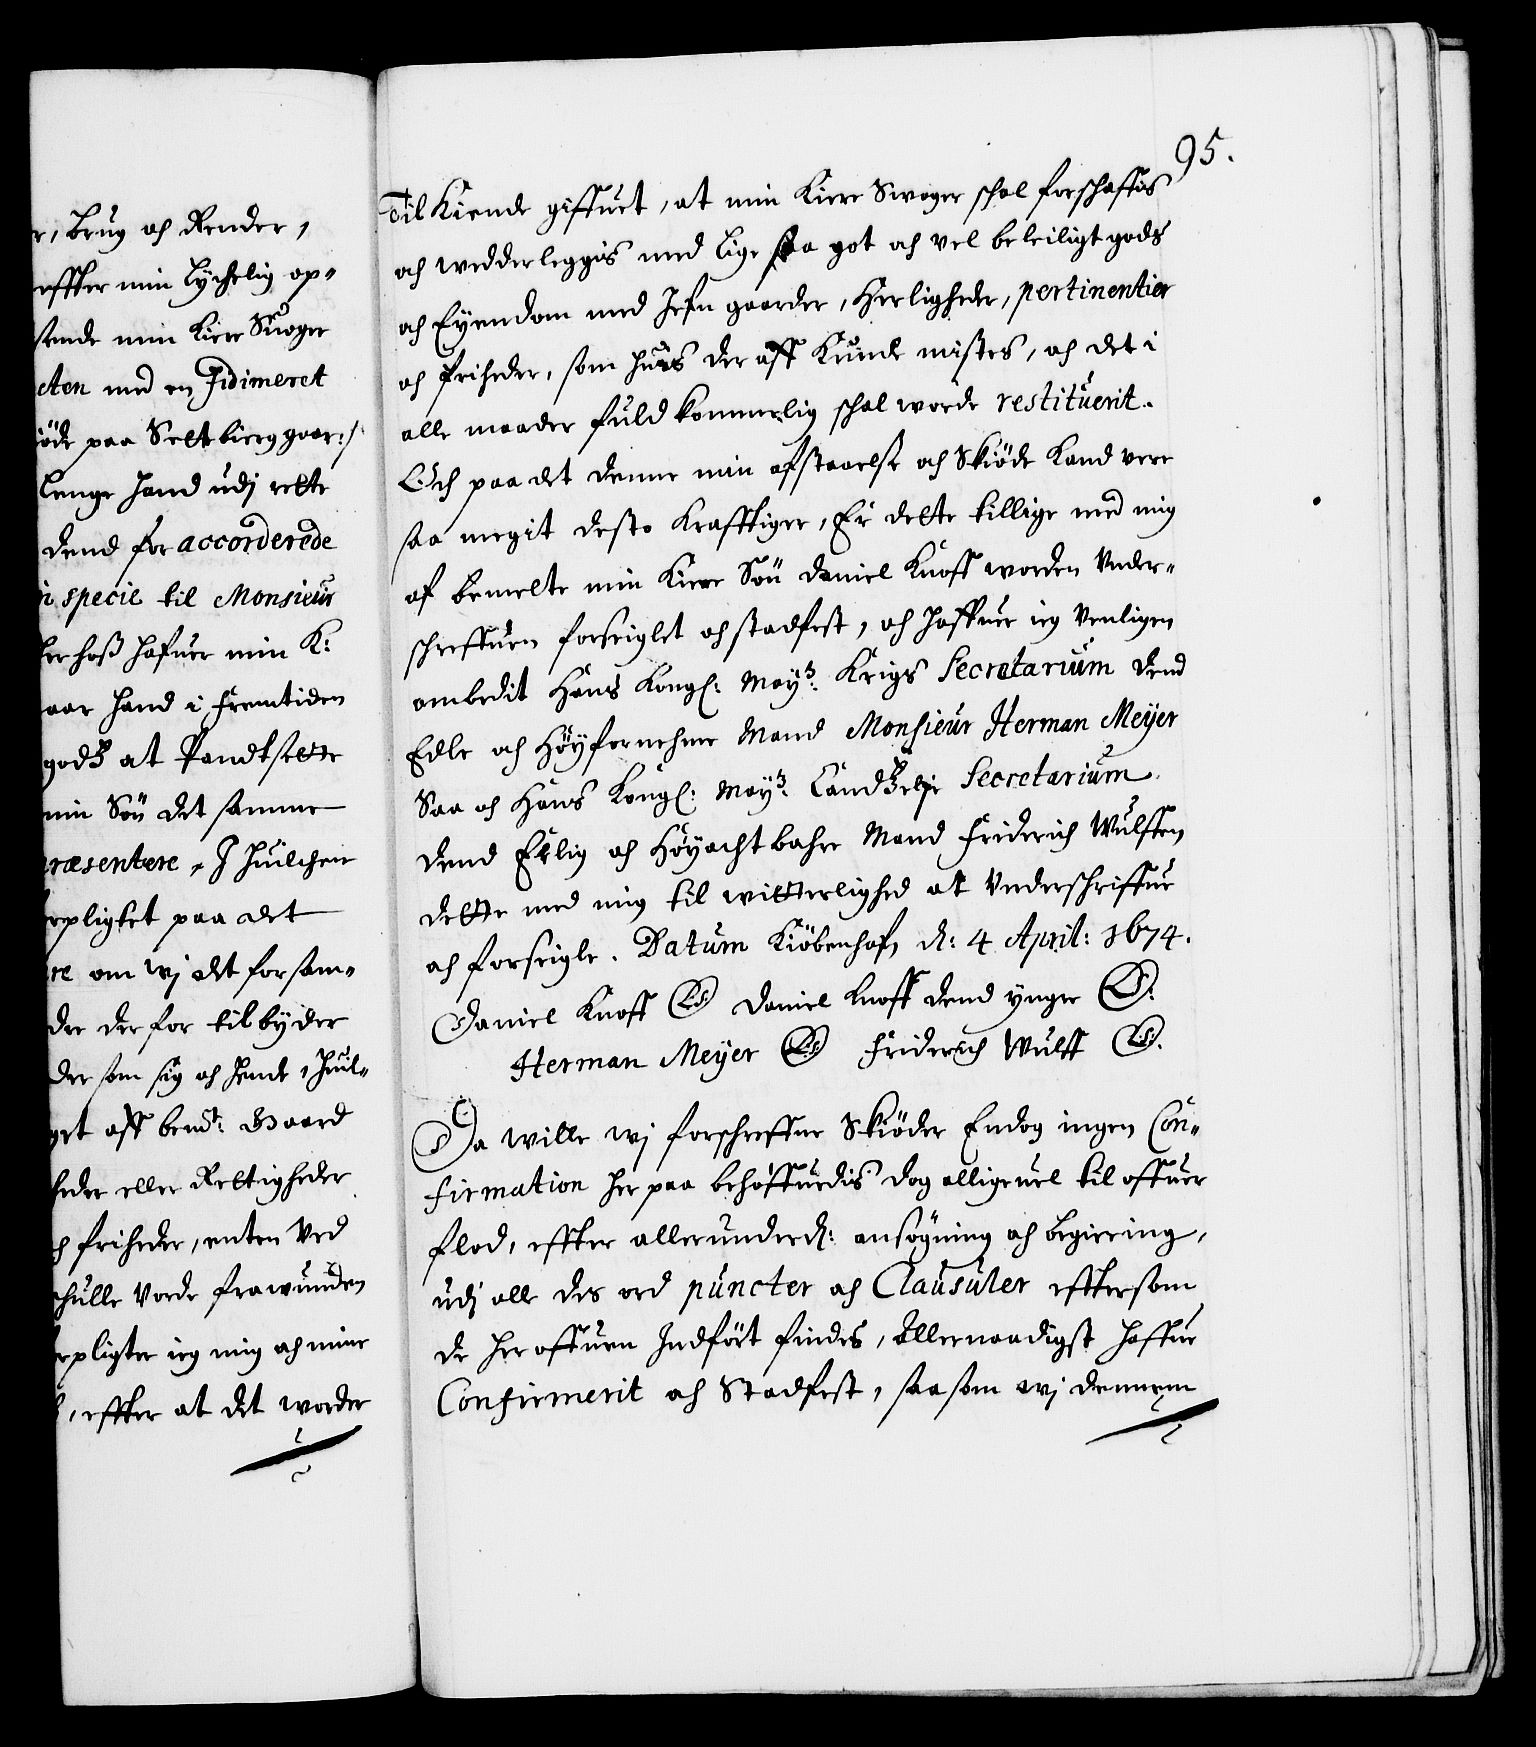 r, brug och Render,
effter min Lychelig op-
sende min kiere Suoger
cten med en Fidimeret
iöde paa Seltebierggaar:/
lenge hand udj rette
dend for accorderede
i specie til Monsieur
her hoß hafuer min K:
aar hand i fremtiden
godß at Pandtsette
min Sön det samme
ræsentere, I huilchen
rpligtet paa det
re om wj det forsam-
der der for tilbyder
der som sig och hende, huil-
get aff bendt: Gaard
heder eller Rettigheder
ch friheder, enten Ved
schulle vorde frawunden
rpligter ieg mig och mine
, effter at det worder
95.
Til Kiende giffuet, at min kiere Swoger schal forschaffis
och wedderleggis med lige saa got och vel beleiligt gods
och Eyendom med Jefn gaarder, Herligheder, pertinentier
och friheder, som huis der aff kunde mistes, och det i
alle maader fuldkommerlig schal worde restituerit.
Och paa det denne min afstaaelse och Skiöde kand vere
saa megit desto krafftiger, Er dette tillige med mig
af bemelte min kiere Sön Daniel Knoff worden Vnder-
schreffuen forseiglet och stadfest, och haffuer ieg venligen
ombedit Hans Kongl: Mayß: Krigs Secretarium dend
Edle och Höyfornehme Mand Monsieur Herman Meyer
Saa och Hans Kongl: Mayß: Candßelje Secretarium
dend Erlig och Höyachtbahre Mand Friderich Wulffen
dette med mig til witterlighed at Vnderschriffue
och forseigle. Datum Kiöbenhafn, d: 4 April: 1674.
Daniel Knoff LS Daniel Knoff dend ynger LS.
Herman Meyer LS Friderich Wulff LS.
Da wille wj forschreffne Skiöder Endog ingen Con-
firmation her paa behöffuedis dog alligeuel til offuer
flod, effter allerunderd: ansögning och begiering,
udj alle des ord puncter och Clausuler effter som
de her offuen Indfört findes, Allernaadigst haffue
Confirmerit och Stadfest, saasom wj dennem